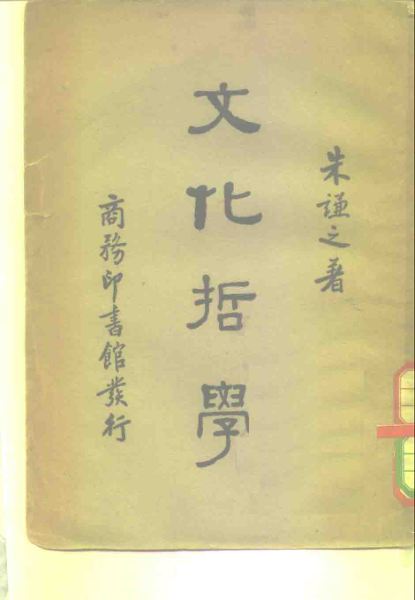 朱謙之著
文化哲學
商務印書館發行